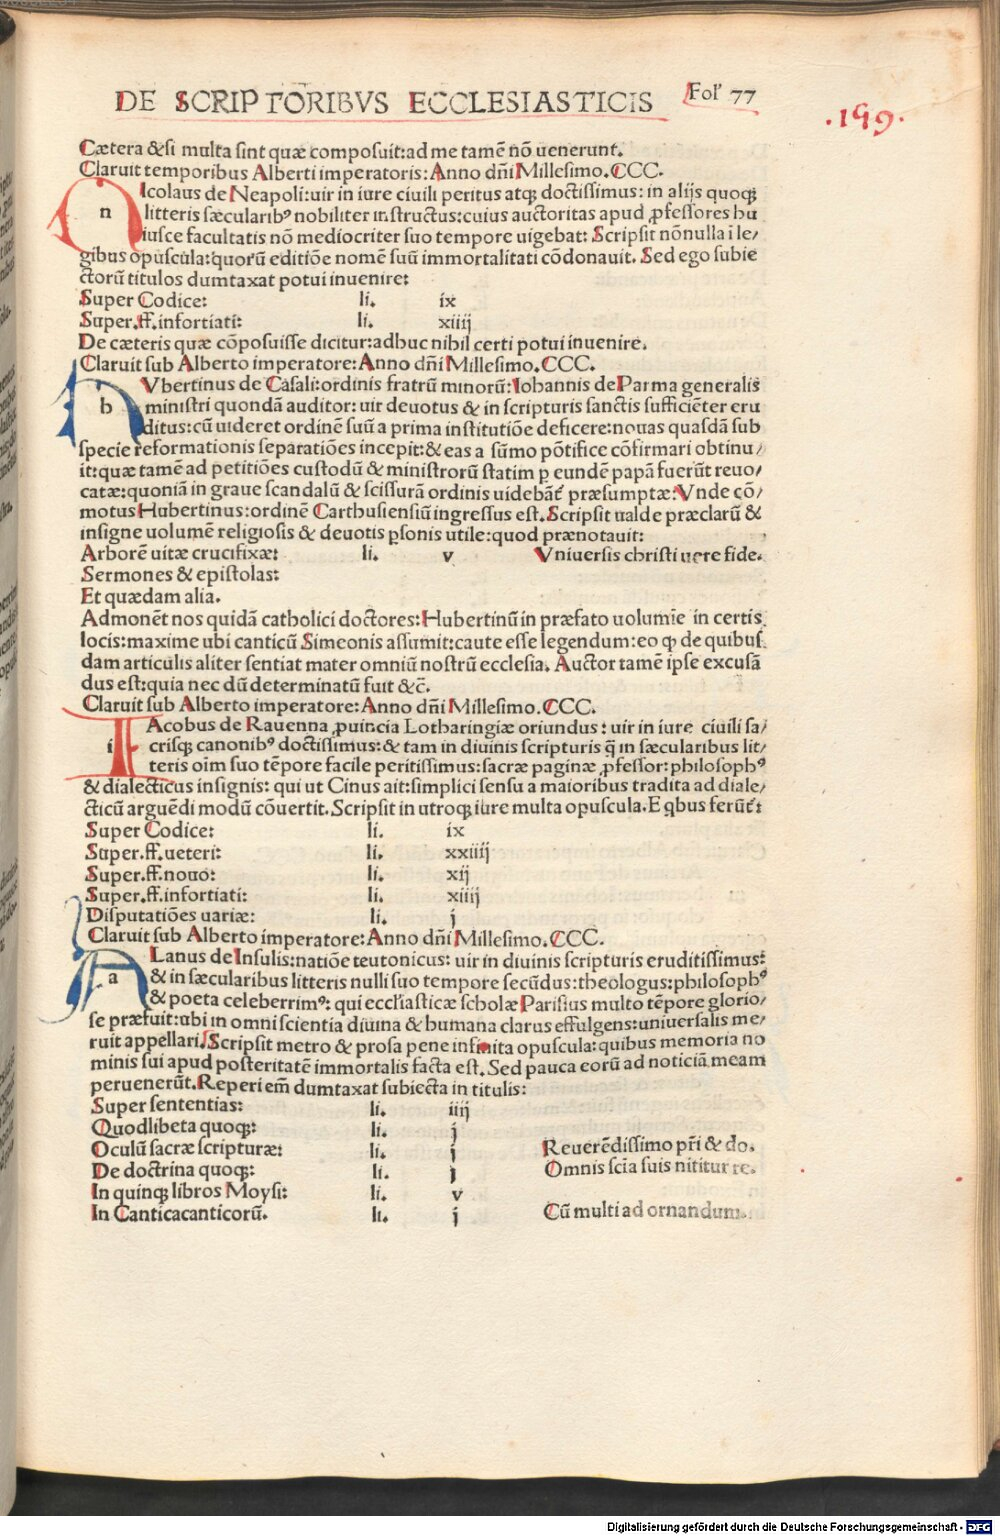 DE SCRIPTORIBVS ECCLESIASTICIS Fol' 77
.199.
Cætera &si multa sint quæ composuit:ad me tamē nō uenerunt.
Claruit temporibus Alberti imperatoris: Anno dñi Millesimo.CCC.
n Icolaus de Neapoli:uir in iure ciuili peritus atq; doctissimus: in alijs quoq;
litteris sæcularibꝰ nobiliter instructus:cuius auctoritas apud ꝓfessores hu
iusce facultatis nō mediocriter suo tempore uigebat: Scripsit nōnulla ī le/
gibus opuscula:quorū editiōe nomē suū immortalitati cōdonauit. Sed ego subie
ctorū titulos dumtaxat potui inuenire:
Super Codice: li. ix
Super.ff.infortiati: li. xiiij
De cæteris quæ cōposuisse dicitur:adhuc nihil certi potui inuenire.
Claruit sub Alberto imperatore: Anno dñi Millesimo.CCC.
h Vbertinus de Casali:ordinis fratrū minorū: Iohannis de Parma generalis
ministri quondā auditor: uir deuotus & in scripturis sanctis sufficiēter eru
ditus:cū uideret ordinē suū a prima institutiōe deficere:nouas quasdā sub
specie reformationis separatiōes incepit:& eas a sūmo pōtifice cōfirmari obtinu/
it:quæ tamē ad petitiōes custodū & ministrorū statim ꝑ eundē papā fuerūt reuo/
catæ:quoniā in graue scandalū & scissurā ordinis uidebāt præsumptæ: Vnde cō/
motus Hubertinus:ordinē Carthusiensiū ingressus est. Scripsit ualde præclarū &
insigne uolumē religiosis & deuotis ꝑsonis utile:quod prænotauit:
Arborē uitæ crucifixæ: li. v Vniuersis christi uere fide.
Sermones & epistolas:
Et quædam alia.
Admonēt nos quidā catholici doctores: Hubertinū in præfato uolumīe in certis
locis:maxime ubi canticū Simeonis assumit:caute esse legendum:eo ꝙ de quibus
dam articulis aliter sentiat mater omniū nostrū ecclesia. Auctor tamē ipse excusā
dus est:quia nec dū determinatū fuit &c̄.
Claruit sub Alberto imperatore: Anno dñi Millesimo.CCC.
i IAcobus de Rauenna ꝓuincia Lotharingiæ oriundus: uir in iure ciuili sa/
crisq; canonibꝰ doctissimus:& tam in diuinis scripturis q̄ in sæcularibus lit/
teris oīm suo tēpore facile peritissimus:sacræ paginæ ꝓfessor:philosophꝰ
& dialecticus insignis: qui ut Cinus ait:simplici sensu a maioribus tradita ad diale/
cticū arguēdi modū cōuertit. Scripsit in utroq; iure multa opuscula. E qbus ferūt:
Super Codice: li. ix
Super.ff.ueteri: li. xxiiij
Super.ff.nouo: li. xij
Super.ff.infortiati: li. xiiij
Disputatiōes uariæ: li. j
Claruit sub Alberto imperatore: Anno dñi Millesimo.CCC.
a ALanus de Insulis:natiōe teutonicus: uir in diuinis scripturis eruditissimus:
& in sæcularibus litteris nulli suo tempore secūdus:theologus:philosophꝰ
& poeta celeberrimꝰ: qui eccl'iasticæ scholæ Parisius multo tēpore glorio/
se præfuit:ubi in omni scientia diuina & humana clarus effulgens:uniuersalis me/
ruit appellari. Scripsit metro & prosa pene infinita opuscula:quibus memoria no
minis sui apud posteritatē immortalis facta est. Sed pauca eorū ad noticiā meam
peruenerūt. Reperi em̄ dumtaxat subiecta in titulis:
Super sententias: li. iiij
Quodlibeta quoq;: li. j
Oculū sacræ scripturæ: li. j Reuerēdissimo pr̄i & do.
De doctrina quoq;: li. j Omnis scīa suis nititur re.
In quinq; libros Moysi: li. v
In Canticacanticorū. li. j Cū multi ad ornandum.
Digitalisierung gefördert durch die Deutsche Forschungsgemeinschaft - DFG